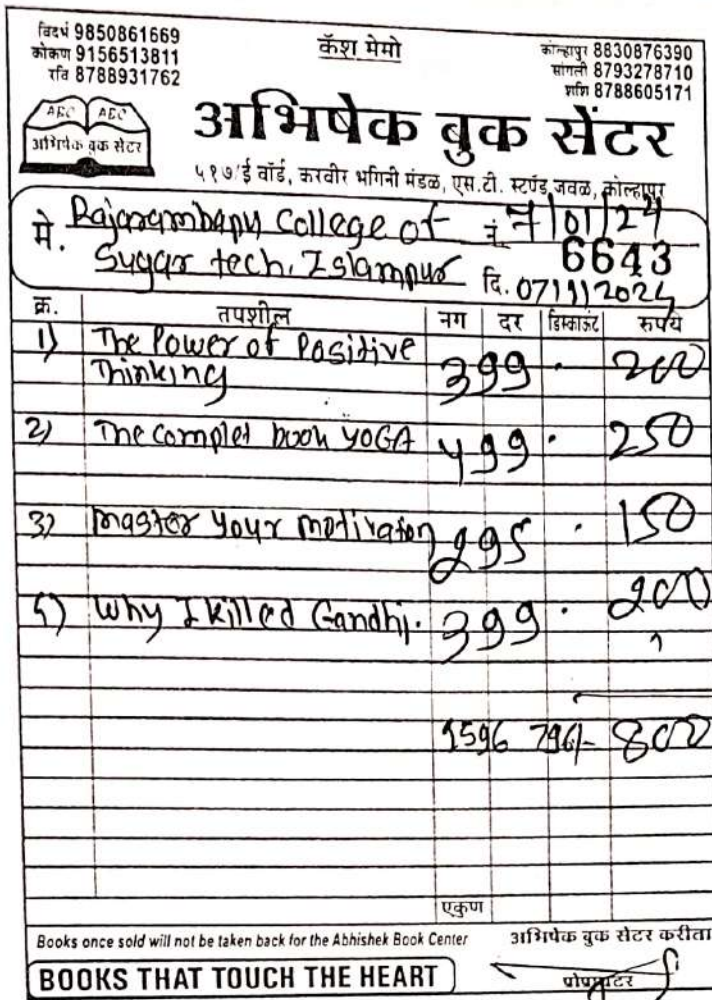 विदर्भ 9850861669
कोकण 9156513811
रवि 8788931762
कॅश मेमो
कोल्हापुर 8830876390
सांगली 8793278710
शशि 8788605171
ABC ABC
अभिषेक बुक सेंटर
अभिषेक बुक सेंटर
५१७/ई वॉर्ड, करवीर भगिनी मंडळ, एस.टी. स्टॅण्ड जवळ, कोल्हापुर
मे. Rajarambapu College of नं. 7/01/24
6643
Sugar tech. Islampur दि.
क्र. तपशील नग दर डिस्काऊंट रुपये
1) The Power of Positive
Thinking 399 200
2) The complet book YOGA 499 250
3) Master Your motivaton 295 150
Why I killed Gandhi. 399 200
1596 796/- 800
एकुण
Books once sold will not be taken back for the Abhishek Book Center
अभिषेक बुक सेंटर करीता
BOOKS THAT TOUCH THE HEART
प्रोप्रायटर